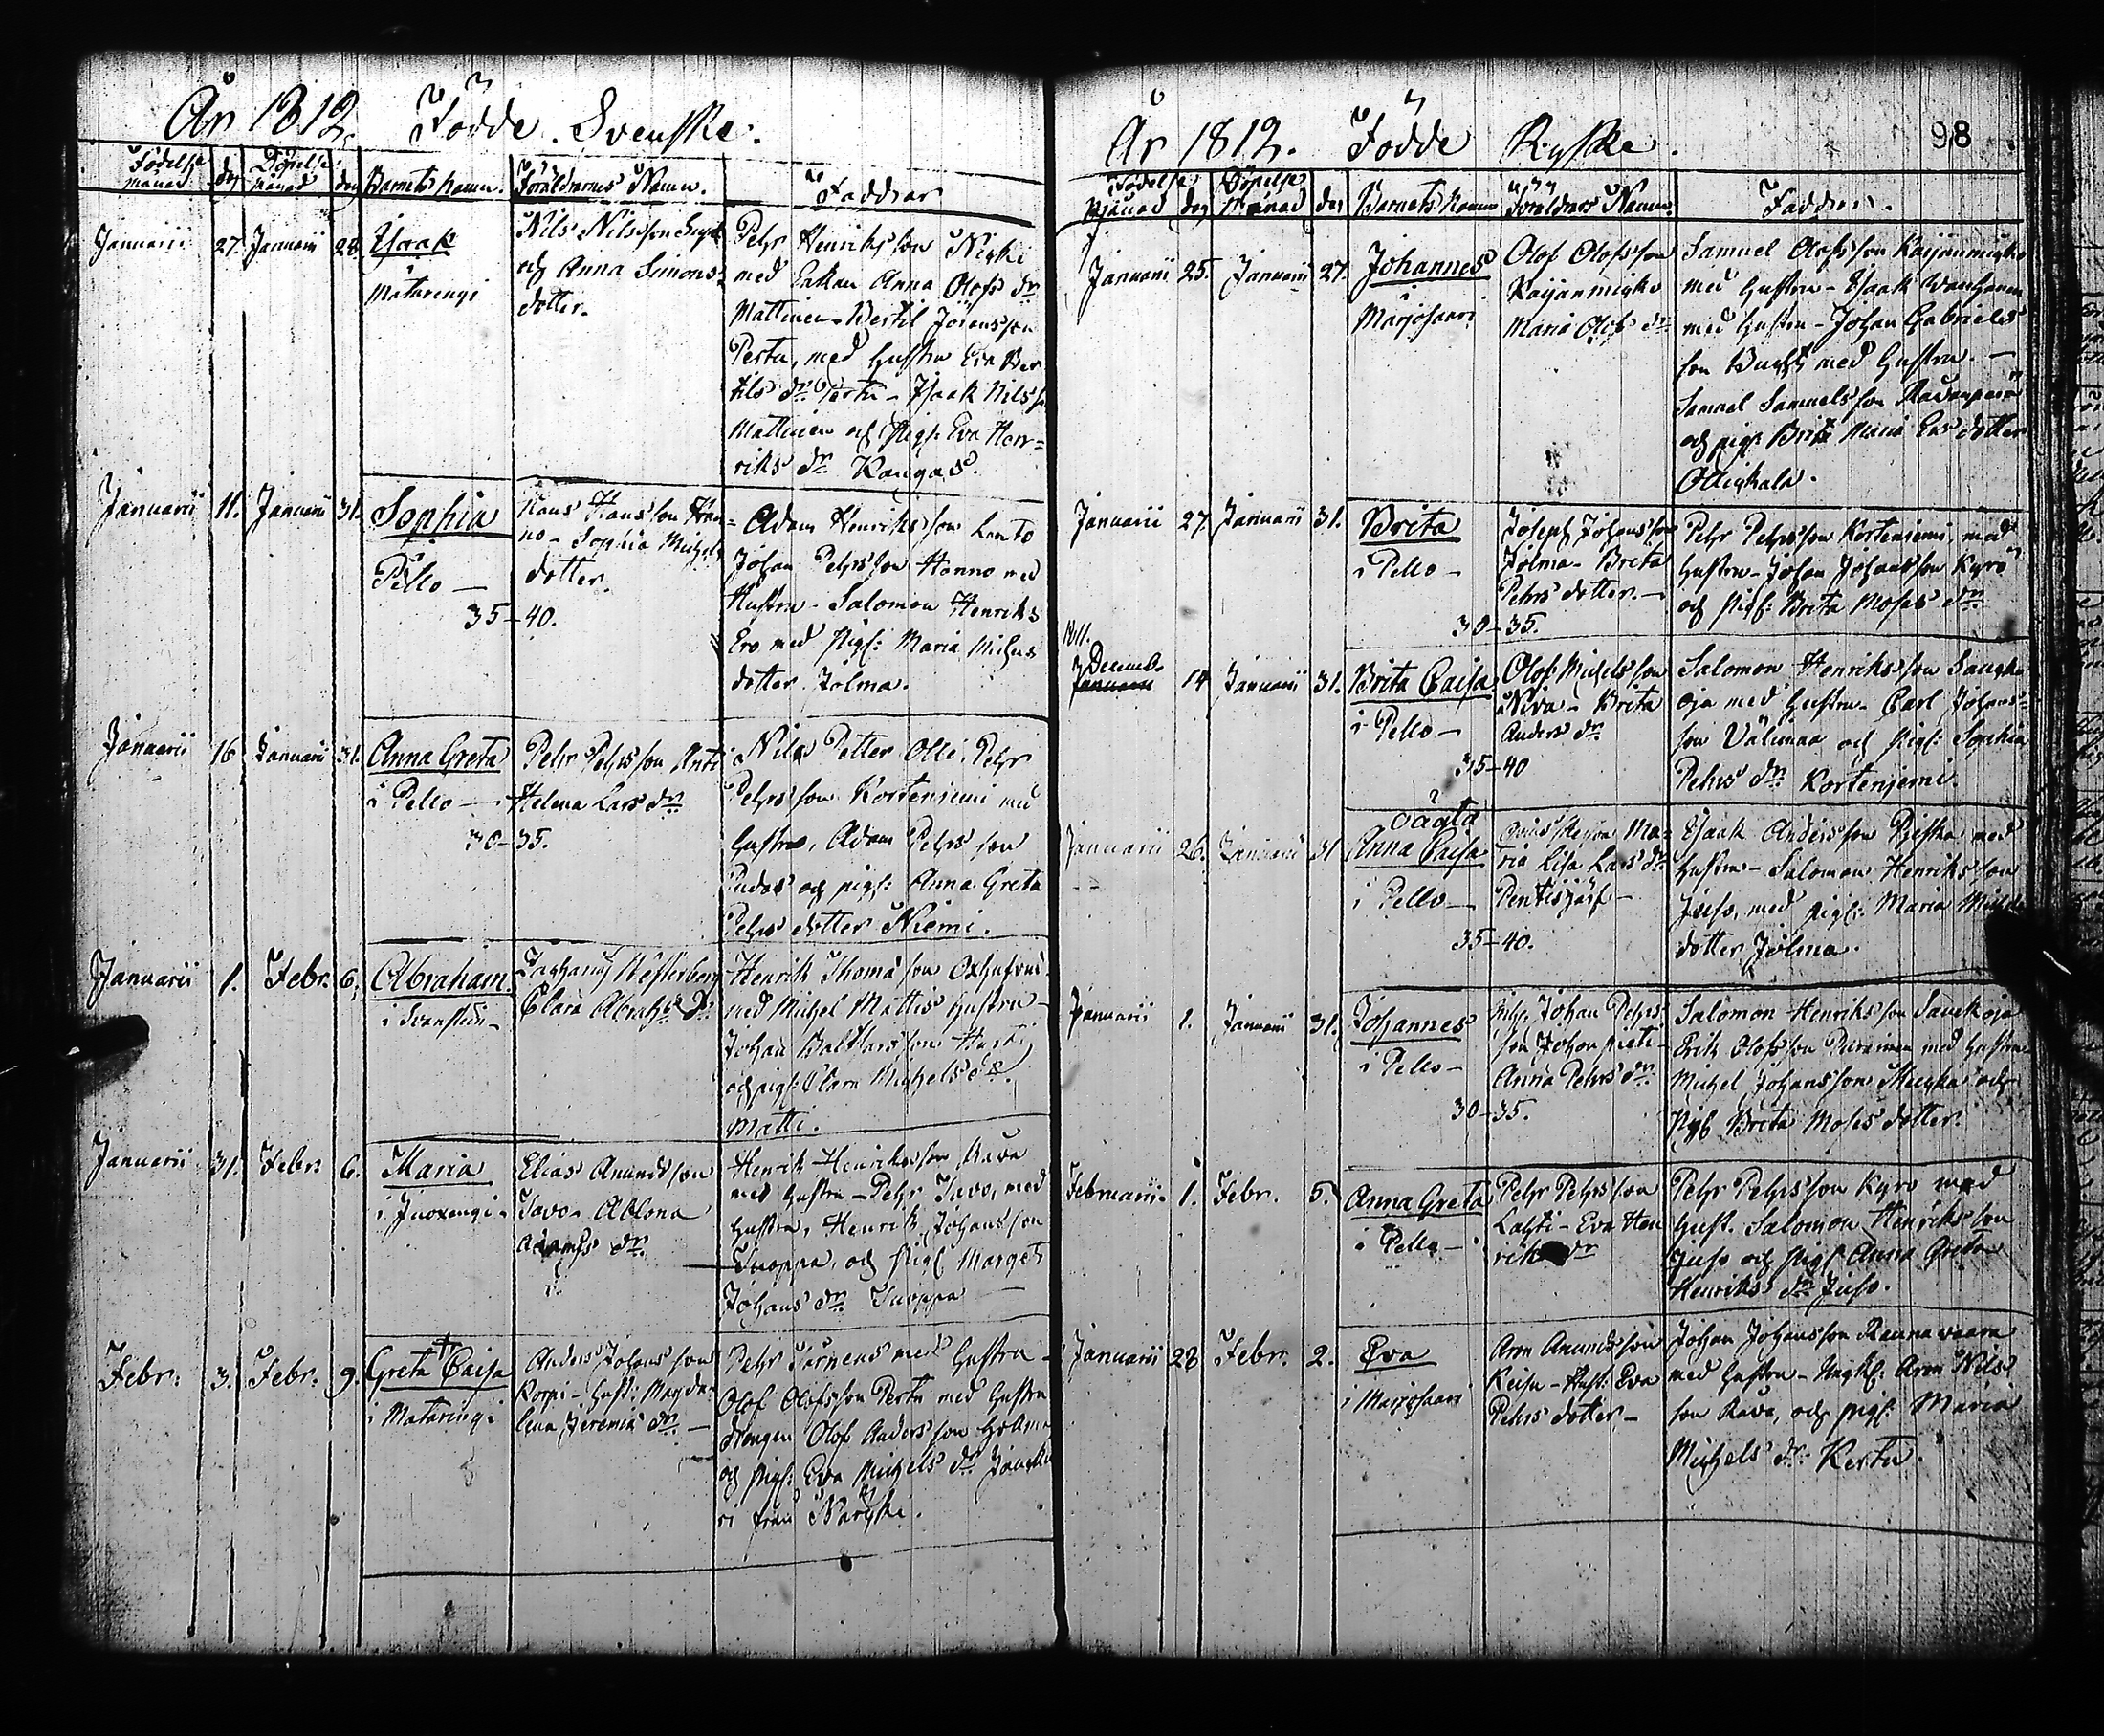 År 1812. Födde. Svenske.
Födelse månad dag Döpelse månad dag Barnets Namn. Föräldrarnes Namn. Faddrar
Januarii 27. Januarii 28. Isaak
i
Matarengi
Nils Nilsson
och Anna Simons
dotter.
Pehr Henriksson Niski
med Enkan Anna Olofs dr
Mattinen. Bertil Jöransson
Pertu, med hustru Eva Ber
tils dr Pertu - Isaak Nilsson
Mattinen och Pig: Eva Hen=
riks dr Kangas.
Januarii 11. Januarii 31. Sophia
Pello —
35-40.
Hans Hansson Han=
no - Sophia Michels
dotter.
Adam Henriksson Lanto
Johan Pehrsson Hanno med
Hustru - Salomon Henriks
Ero med Pig: Maria Michels
dotter Jolma.
Januarii 16 Januarii 31. Anna Greta
i Pello —
30-35.
Pehr Pehrsson Anti
Helena Lars dr
Nils Petter Olli, Pehr
Pehrsson Korteniemi med
hustru, Adam Pehrsson
Pudas och pig: Anna Greta
Pehrs dotter Niemi.
Januarii 1. Febr. 6. Abraham.
i Svanstein -
Zachanj Westerberg
Clara Abrah: Dr
Henrik Thomasson Oxhufvud
med Michel Mattis hustru -
Johan Balthasson
och pig: Clara Michels dr
Matti.
Januarii 31. Febr: 6. Maria
i Juoxengi -
Elias Anundsson
Tavo - Ablona
Adams dr
Henrik Henriksson Rava
med hustru - Pehr Tavo, med
hustru, Henrik Johansson
Tuoppa, och Pig: Marget
Johans dr Tuoppa —
Febr: 3. Febr. 9. Greta Caisa
i Mataringi
Anders Johansson
Korpi - hust: Magda=
lena Jeremiæ dr —
Pehr Särnens med hustru -
Olof Olofsson Pertu med hustru
drengen Olof Andersson
och Pig: Eva Michels dr
i från Narki.
År 1812. Födde Ryske.
98
Födelse Månad dag Döpelse Månad dag Barnets Namn Föräldrars Namn. Faddrar.
Januarii 25. Januarii 27. Johannes
i
Marjosaari
Olof Olofsson
Kaijanmigko
Maria Olofs dr
Samuel Olofsson Kaijanmigko
med hustru - Isaak Wanhanen
med hustru - Johan Gabriels
son Bucht med hustru. —
Samuel Samuelsson
och pig: Brita Maria Ers dotter
Ollikala.
Januarii 27. Januarii 31. Brita
i Pello -
30-35.
Joseph Johansson
Jolma - Brita
Pehrs dotter. -
Pehr Pehrsson Korteniemi, med
hustru - Johan Johansson Kyrö
och Pig: Brita Moses dr
1811.
Decemb. Januarii 14 Januarii 31. Brita Caisa
i Pello -
35-40
Olof Michelsson
Niva - Brita
Anders dr
Salomon Henriksson Sauko
oja med hustru. Carl Johans=
son Välimaa och Pig: Sophia
Pehrs dr Kortenjemi.
Januarii 26. Januarii 31 oäkta
Anna Caisa
i Pello -
35-40.
Ma=
ria Lisa Lars dr
Pentisjärf -
Isaak Andersson Riska med
hustru - Salomon Henriksson
Juso, med pig: Maria Michels
dotter Jolma.
Januarii 1. Januarii 31. Johannes
i Pello -
30-35.
Johan Pehrs
son Johonpieti -
Anna Pehrs dr
Salomon Henriksson Saukoja
Erik Olofsson Puranen med hustru
Michel Johansson och
Pig Brita Moses dotter.
Februarii 1. Febr. 5. Anna Greta
i Pello -
Pehr Pehrsson
Lahti - Eva Hen
riks dr
Pehr Pehrsson Kyro med
hust. Salomon Henriksson
Juso och Pig: Anna Greta
Henriks dr Juso.
Januarii 28 Febr. 2. Eva
i Marjosaari
Aron Anundsson
Keisu - Hust: Eva
Pehrs dotter -
Johan Johansson Raunavaara
med hustru - Aron Nils
son Rava, och pig: Maria
Michels dr Kertu.